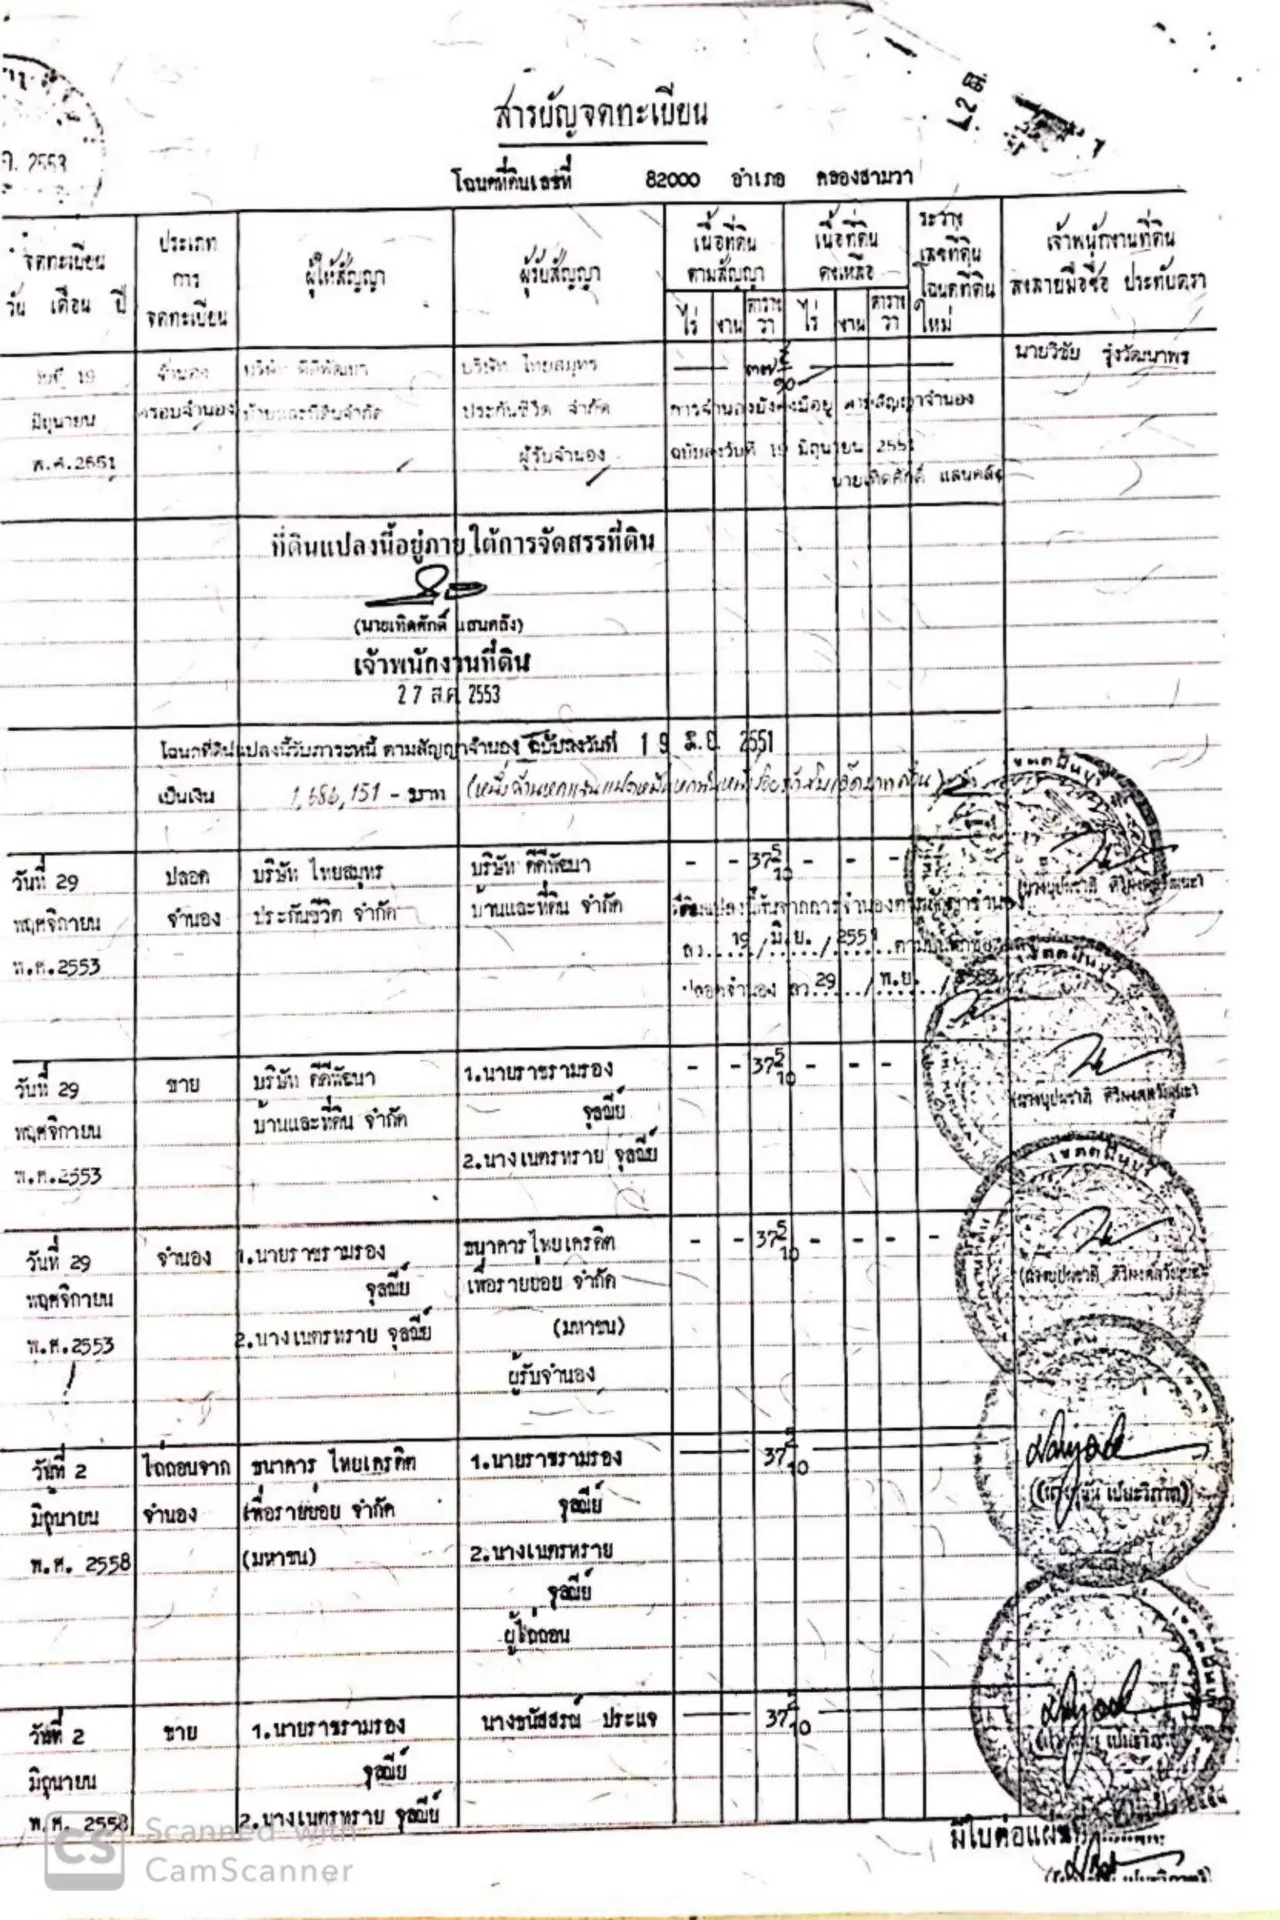 สารบัญจดทะเบียน
โฉนดที่ดินเลขที่ 82000 อำเภอ คลองสามวา
จดทะเบียน วัน เดือน ปี
ประเภทการจดทะเบียน
ผู้ให้สัญญา
ผู้รับสัญญา
เนื้อที่ดินตามสัญญา
ไร่ งาน ตารางวา
เนื้อที่ดินคงเหลือ
ไร่ งาน ตารางวา
ระวาง เลขที่ดิน โฉนดที่ดินใหม่
เจ้าพนักงานที่ดิน ลงลายมือชื่อ ประทับตรา
วันที่ 19 จำนอง บริษัท ดีดีพัฒนา บริษัท ไทยสมุทร นายวิชัย รุ่งวัฒนาพร
มิถุนายน ครอบจำนอง บ้านและที่ดินจำกัด ประกันชีวิต จำกัด การจำนองยังคงมีอยู่ ตามสัญญาจำนอง
พ.ศ.2551 ผู้รับจำนอง ฉบับลงวันที่ 19 มิถุนายน 2551
นายเทิดศักดิ์ แสนคลัง
ที่ดินแปลงนี้อยู่ภายใต้การจัดสรรที่ดิน
(นายเทิดศักดิ์ แสนคลัง)
เจ้าพนักงานที่ดิน
27 ส.ค. 2553
โฉนดที่ดินแปลงนี้รับภาระหนี้ ตามสัญญาจำนอง ฉบับลงวันที่ 19 มิ.ย. 2551
เป็นเงิน 1,686,151 - บาท
วันที่ 29 ปลอด บริษัท ไทยสมุทร บริษัท ดีดีพัฒนา - - 37 5/10 - - -
พฤศจิกายน จำนอง ประกันชีวิต จำกัด บ้านและที่ดิน จำกัด ที่ดินแปลงนี้พ้นจากการจำนองตามสัญญาจำนอง
พ.ศ.2553 ลว. 19 / มิ.ย. / 2551
ปลอดจำนอง ลว 29 / พ.ย. / 2553
วันที่ 29 ขาย บริษัท ดีดีพัฒนา 1.นายราชรามรอง - - 37 5/10 - - -
พฤศจิกายน บ้านและที่ดิน จำกัด จุลณีย์
พ.ศ.2553 2.นางเนตรทราย จุลณีย์
วันที่ 29 จำนอง 1.นายราชรามรอง ธนาคาร ไทยเครดิต - - 37 5/10 - - - -
พฤศจิกายน จุลณีย์ เพื่อรายย่อย จำกัด
พ.ศ.2553 2.นางเนตรทราย จุลณีย์ (มหาชน)
ผู้รับจำนอง
วันที่ 2 ไถ่ถอนจาก ธนาคาร ไทยเครดิต 1.นายราชรามรอง 37 5/10
มิถุนายน จำนอง เพื่อรายย่อย จำกัด จุลณีย์
พ.ศ. 2558 (มหาชน) 2.นางเนตรทราย
จุลณีย์
ผู้ไถ่ถอน
วันที่ 2 ขาย 1.นายราชรามรอง นางธนัสสรณ์ ประแจ 37 5/10
มิถุนายน จุลณีย์
พ.ศ. 2558 2.นางเนตรทราย จุลณีย์
มีใบต่อแผ่นที่
CS Scanned with
CamScanner